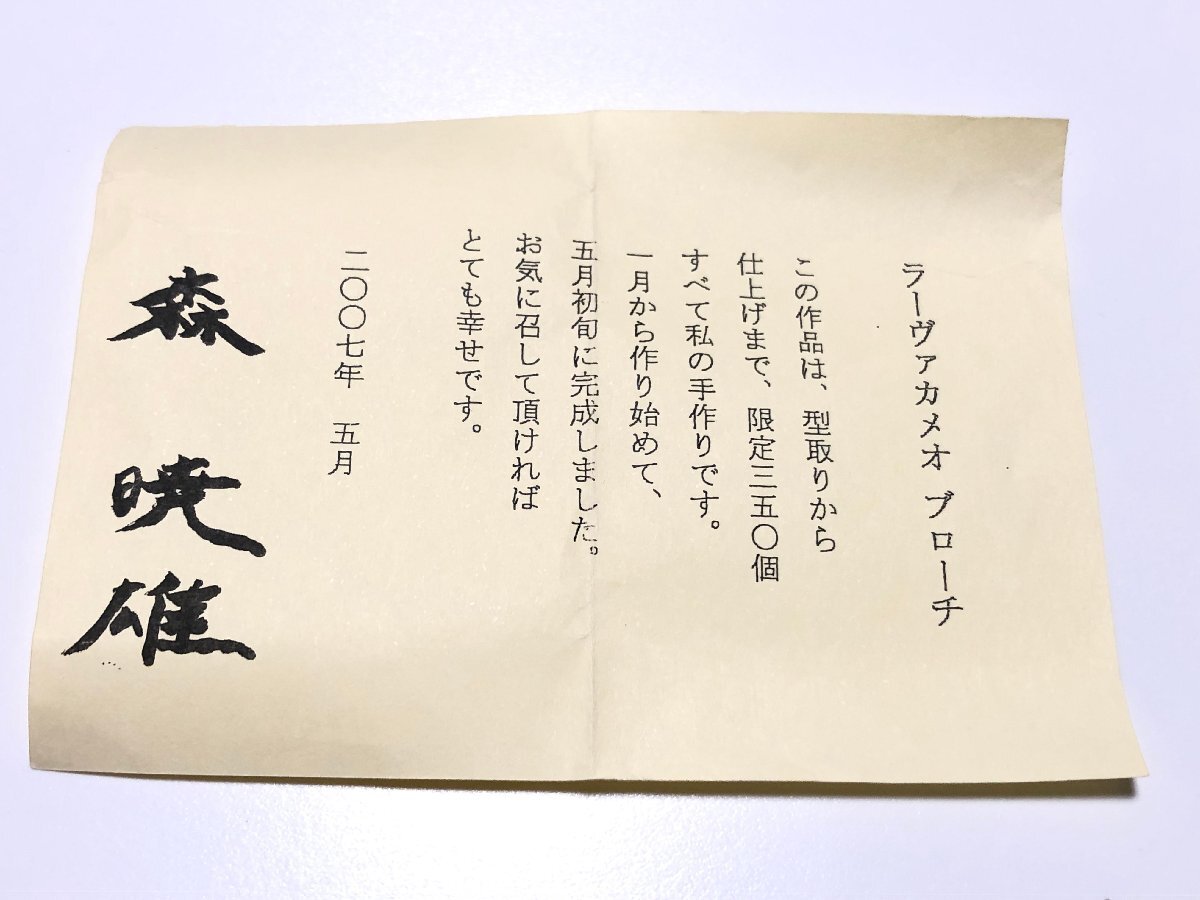 ラーヴァカメオ ブローチ
この作品は、型取りから
仕上げまで、限定三五〇個
すべて私の手作りです。
一月から作り始めて、
五月初旬に完成しました。
お気に召して頂ければ
とても幸せです。
二〇〇七年 五月
森 暁雄